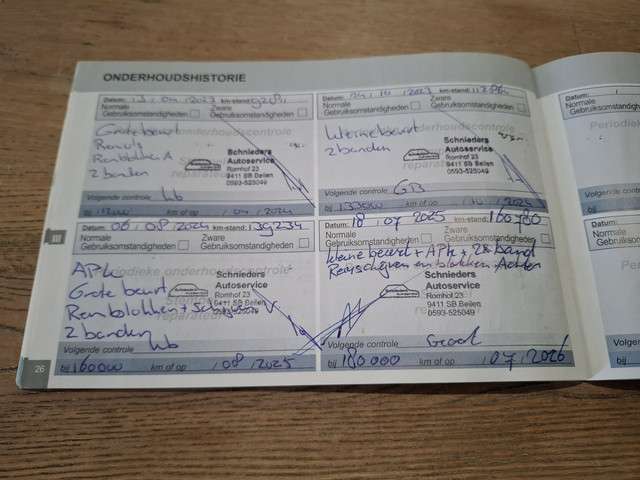 ONDERHOUDSHISTORIE
Datum: 13 04 2023 km-stand:
Normale Gebruiksomstandigheden
Zware Gebruiksomstandigheden
Grote beurt
2 banden
Schnieders
Autoservice
Romhof 23
9411 SB Beilen
0593-525049
Volgende controle kb
bij km of op / 04 / 2024
Datum: 2023 km-stand:
Normale Gebruiksomstandigheden
Zware Gebruiksomstandigheden
2 banden
Schnieders
Autoservice
Romhof 23
9411 SB Beilen
0593-525049
Volgende controle GB
bij km of op
Datum: 06 / 08 / 2024 km-stand: 139234
Normale Gebruiksomstandigheden
Zware Gebruiksomstandigheden
Periodieke onderhoudscontrole
APk
Grote beurt
Remblokken +
2 banden
Schnieders
Autoservice
Romhof 23
9411 SB Beilen
0593-525049
Volgende controle kb
bij 160000 km of op / 08 / 2025
Datum: 18 / 07 / 2025 km-stand: 160780
Normale Gebruiksomstandigheden
Zware Gebruiksomstandigheden
kleine beurt + APk + 2x band
Remschijven en blokken Achter
Schnieders
Autoservice
Romhof 23
9411 SB Beilen
0593-525049
Volgende controle Groot
bij 180000 km of op / 07 / 2026
26
Datum:
Normale
Gebruiksom
Periodieke
Volgende c
bij
Datum:
Normale
Gebruiksom
Volgende
bij